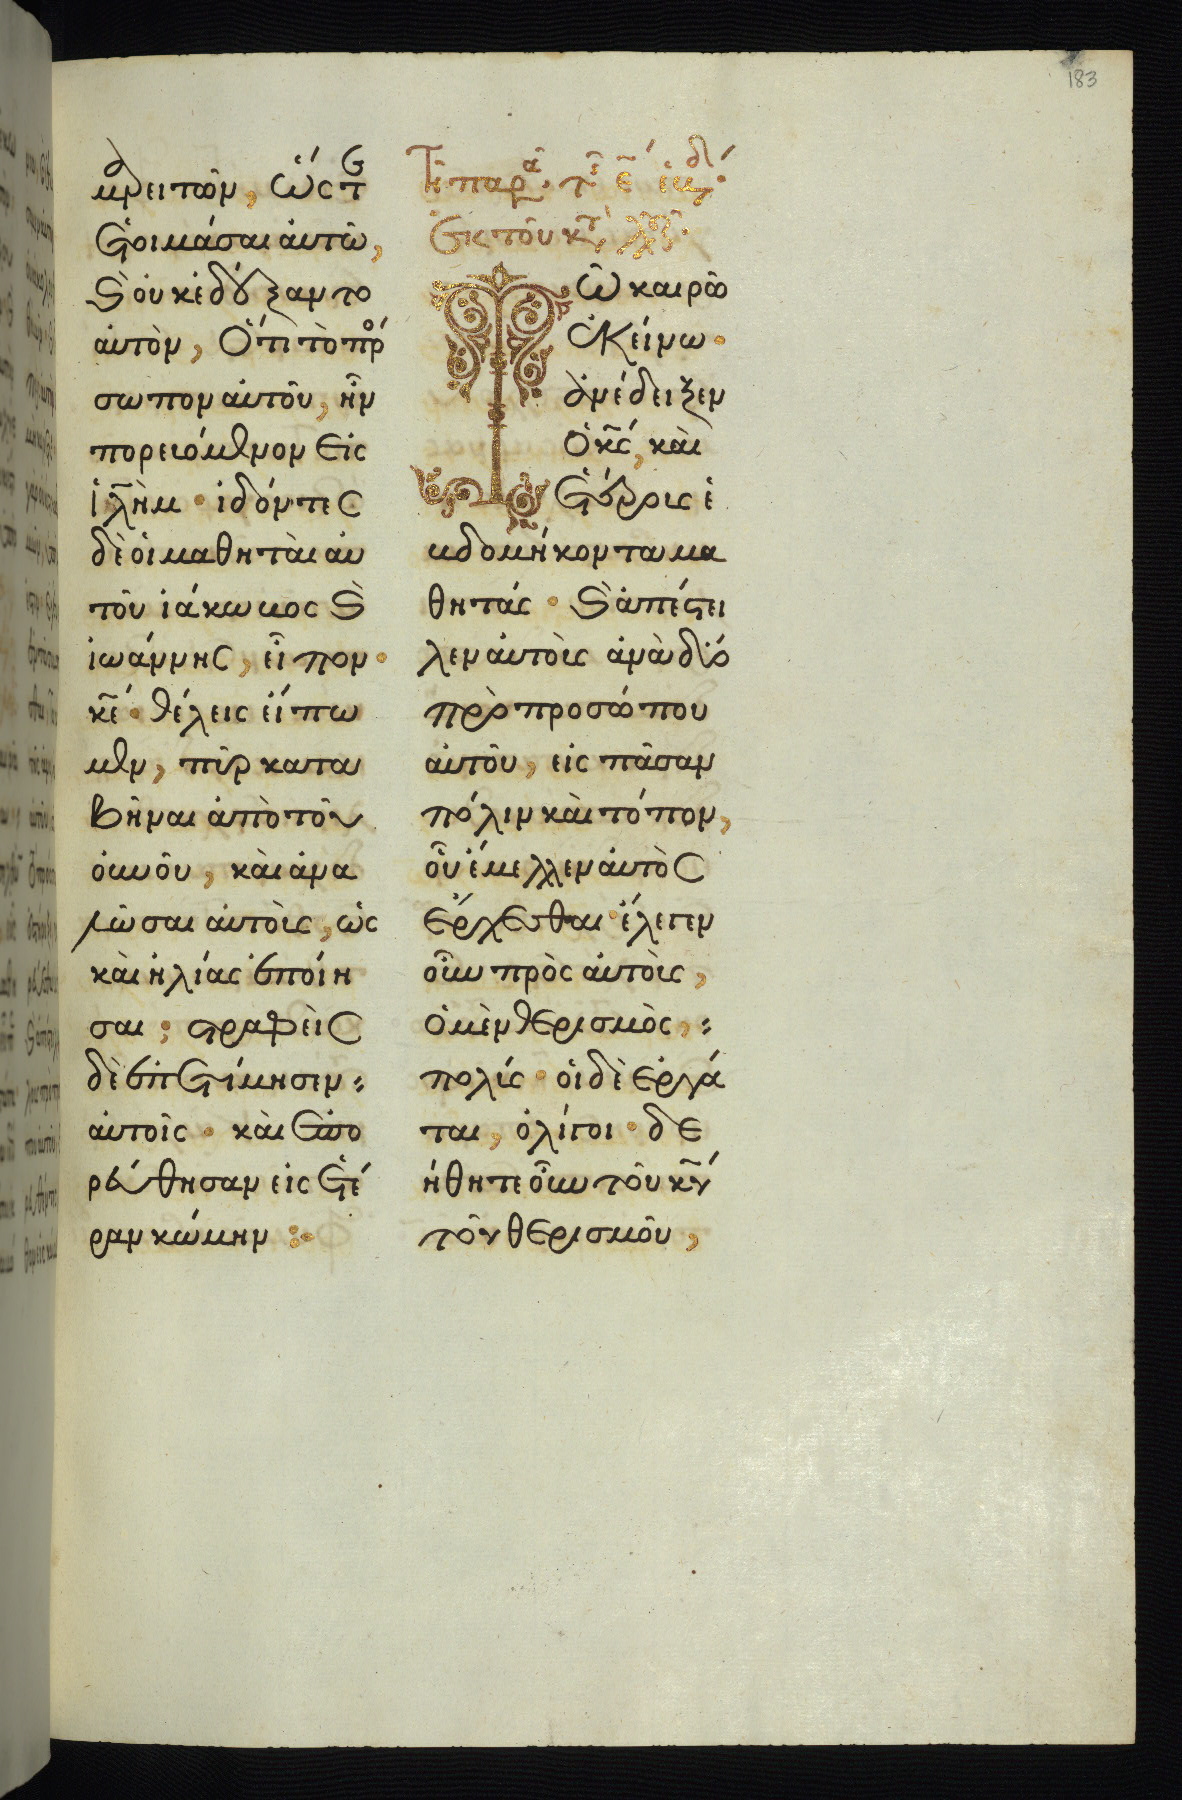 183
μαρειτῶν, ὥστ
ἑτοιμάσαι αὐτῶ,
καὶ οὐκ ἐδέξαντο
αὐτὸν, ὅτι τὸ πρό
σωπον αὐτοῦ, ἦν
πορευόμενον εἰς
ἰλῆμ · ἰδόντες
δὲ οἱ μαθηταὶ αὐ
τοῦ ἰάκωβος καὶ
ἰωάννης, εἶπον ·
κε · θέλεις εἴπω
μεν, πῦρ κατα
βῆναι ἀπὸ τοῦ
οὐνοῦ, καὶ ἀνα
λῶσαι αὐτοὺς, ὡς
καὶ ἠλίας ἐποίη
σεν; στραφεὶς
δὲ ἐπετίμησεν
αὐτοῖς · καὶ ἐπο
ρεύθησαν εἰς ἑτέ
ραν κώμην :·
Τῆ παρα
ἐκ τοῦ κτ
Τῶ καιρῶ
ἐκείνω ·
ἀνέδειξεν
ὁ κς, καὶ
ἑτέρους ἑ
βδομήκοντα μα
θητάς · καὶ ἀπέστει
λεν αὐτοὺς ἀνὰ δύο
πρὸ προσώπου
αὐτοῦ, εἰς πᾶσαν
πόλιν καὶ τόπον,
οὗ ἔμελλεν αὐτὸς
ἔρχεσθαι · ἔλεγεν
οὖν πρὸς αὐτοὺς,
ὁ μὲν θερισμὸς,
πολύς · οἱ δὲ ἐργά
ται, ὀλίγοι · δε
ήθητε οὖν τοῦ κυ
τοῦ θερισμοῦ,